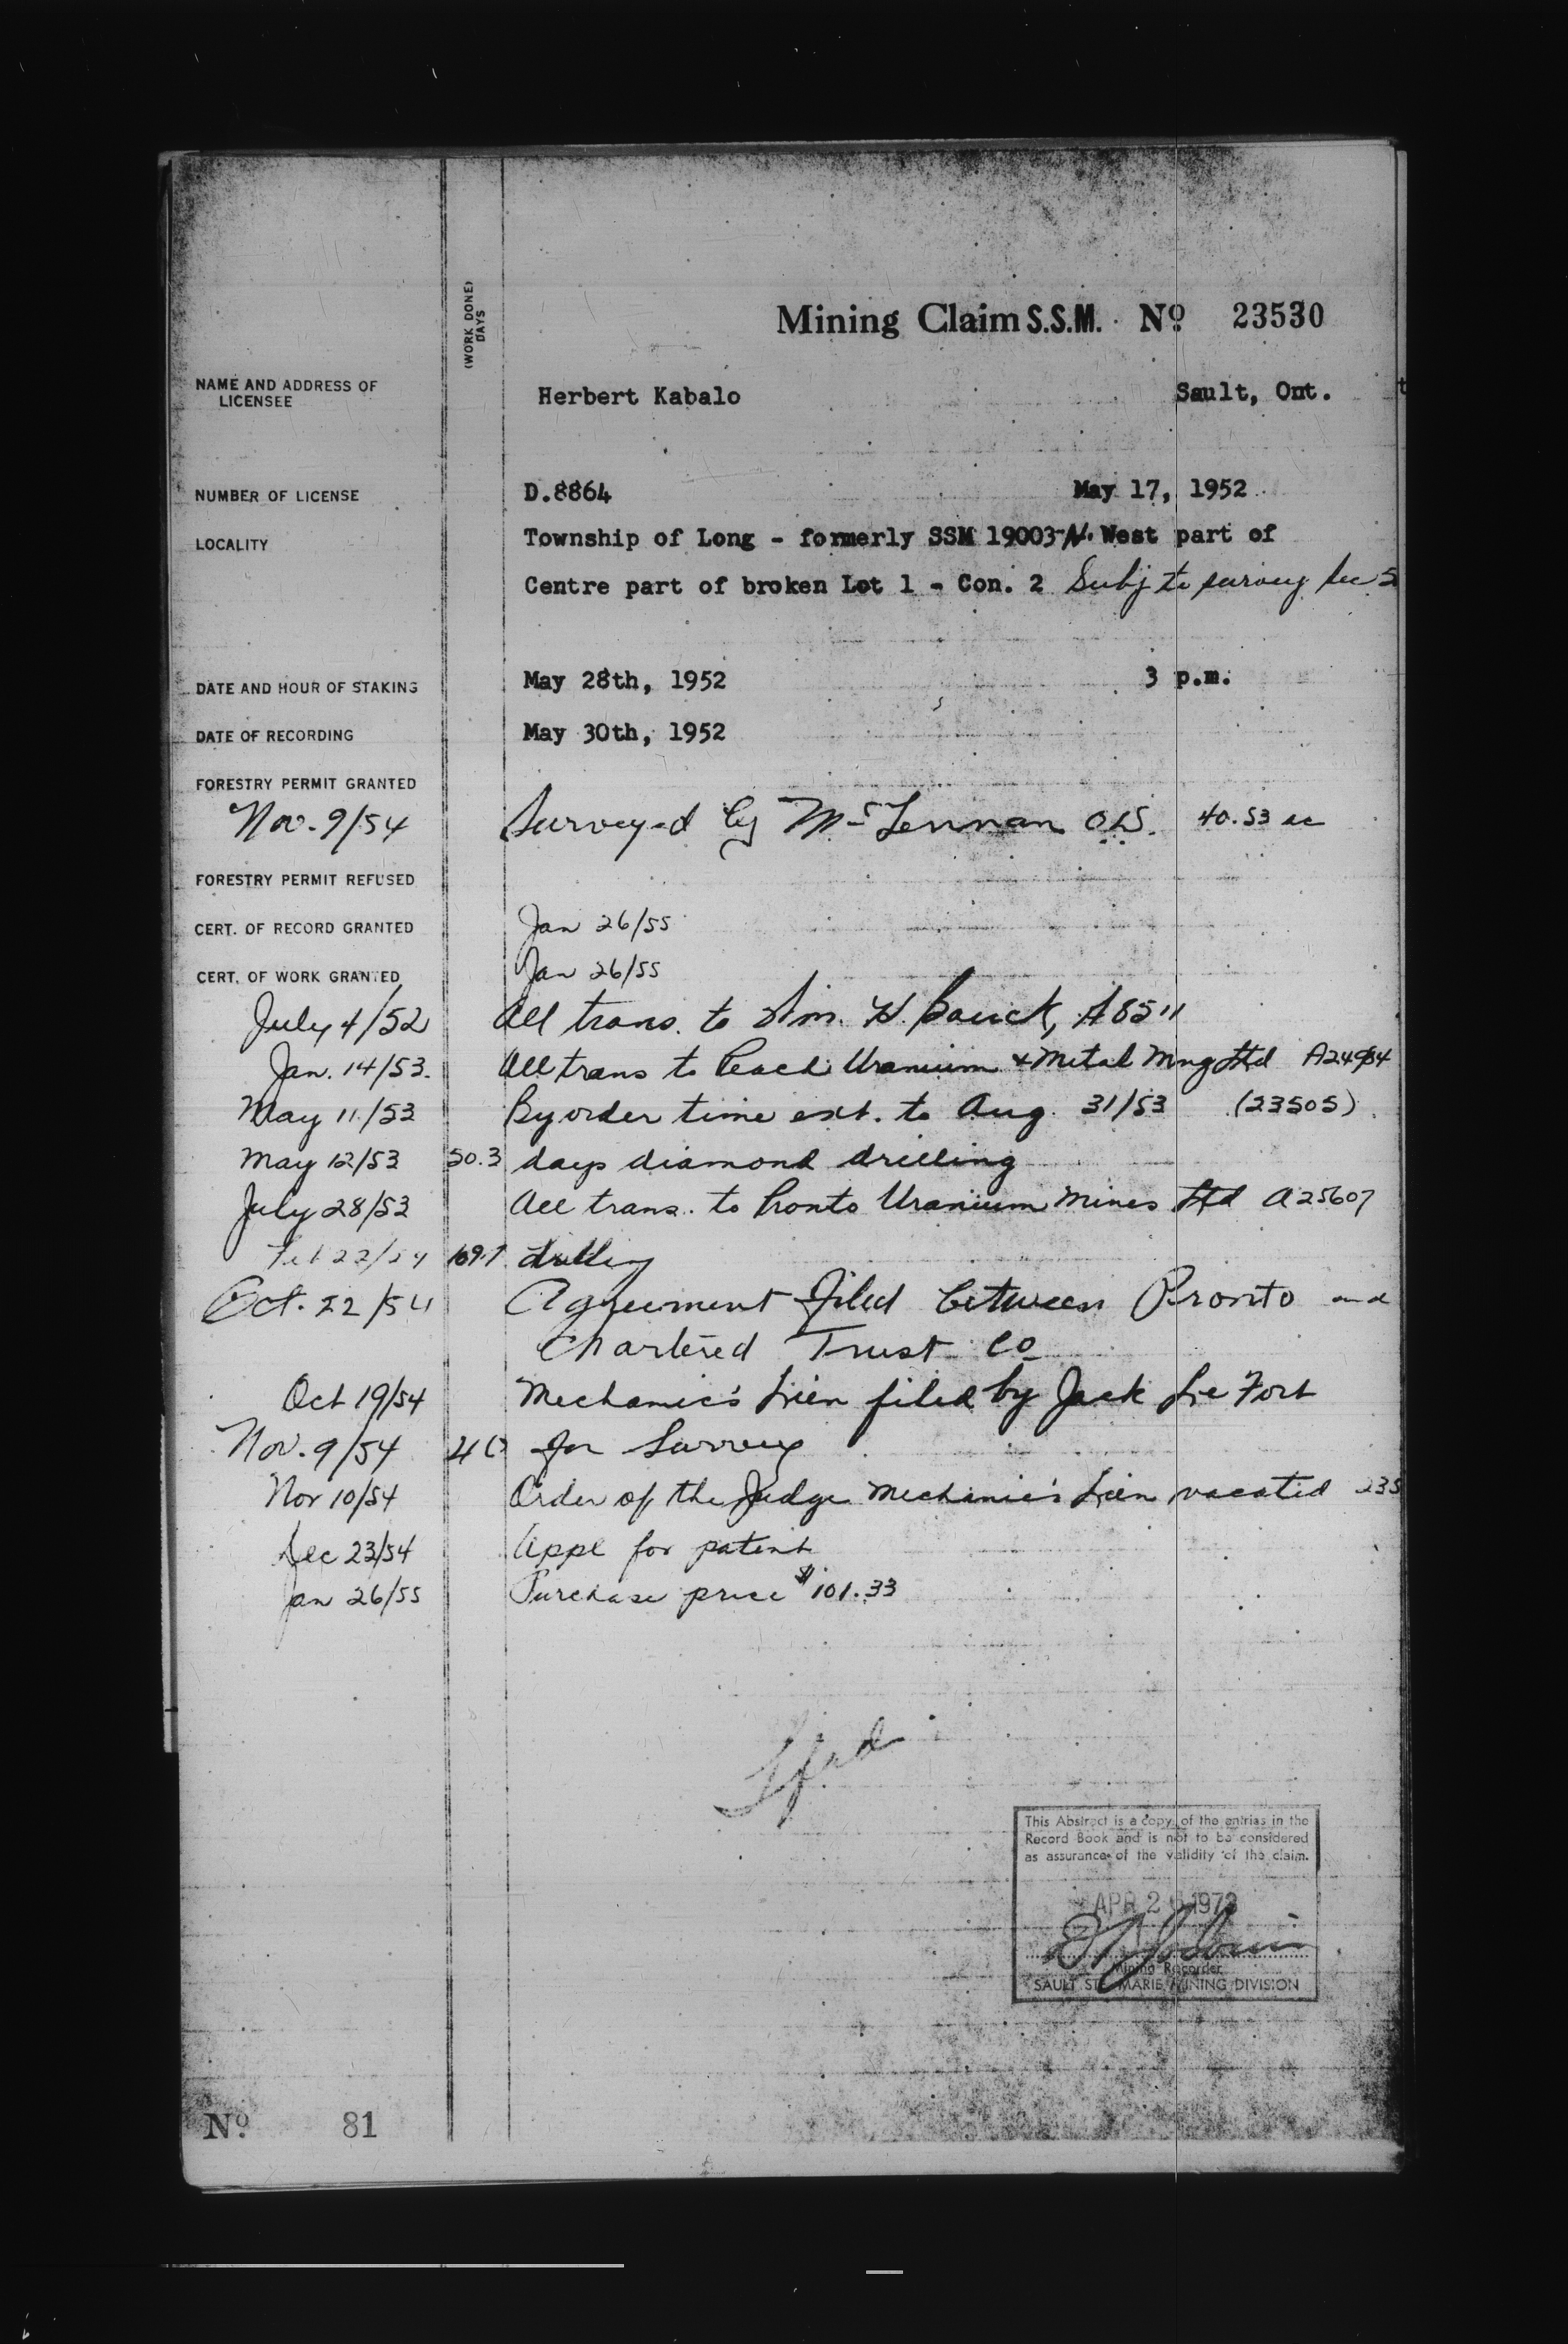 (WORK DONE)
DAYS
Mining Claim S.S.M. Nº 23530
NAME AND ADDRESS OF
LICENSEE
Herbert Kabalo Sault, Ont.
NUMBER OF LICENSE D.8864 May 17, 1952
LOCALITY Township of Long - formerly SSM 19003-N. West part of
Centre part of broken Lot 1 - Con. 2 Subj to survey Sec 5
DATE AND HOUR OF STAKING May 28th, 1952 3 p.m.
DATE OF RECORDING May 30th, 1952
FORESTRY PERMIT GRANTED
Nov. 9/54 Surveyed by McLennan OLS. 40.53 ac
FORESTRY PERMIT REFUSED
CERT. OF RECORD GRANTED Jan 26/55
CERT. OF WORK GRANTED Jan 26/55
July 4/52 All trans. to Wm. H. A8511
Jan. 14/53. All trans to Peach Uranium & Metal Mng Ltd
May 11/53 By order time ext. to Aug. 31/53 (23505)
May 12/53 50.3 days diamond drilling
July 28/53 All trans. to Pronto Uranium Mines Ltd A25607
Feb 22/54 drilling
Oct. 22/54 Agreement filed between Pronto and
Chartered Trust Co
Oct 19/54 Mechanic's Lien filed by Jack Le Fort
Nov. 9/54 40 for Survey
Nov 10/54 Order of the Judge Mechanic's Lien vacated 235
Dec 23/54 Appl for patent
Jan 26/55 Purchase price $101.33
This Abstract is a copy of the entries in the
Record Book and is not to be considered
as assurance of the validity of the claim.
APR 2 1973
Mining Recorder
SAULT STE. MARIE MINING DIVISION
Nº 81